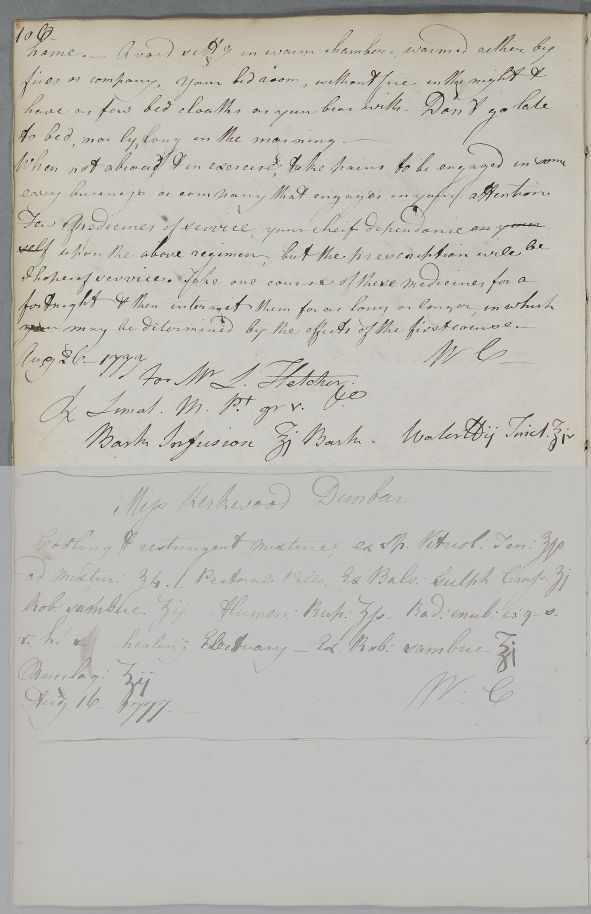 106
home. Avoid sitting in warm chambers, warmed either by
fires or company, your bed room, without fire in the night &
have as few bed cloaths as you bear with. Don't go late
to bed, nor ly long in the morning
When not abroad & in exercise, take pains to be engaged in some
easy business or company that engages in your attention
Few Medicines of service, your cheif dependance on your
self upon the above regimen, but the prescription will be
I hope of service. Take one course of these medicines for a
fortnight & then intermit them for as long or longer, in which
may be determined by the effects of the first course.
Aug 26 - 1777 W C
For Mr L. Fletcher.
Limat. M. Pt gr v.
Bark Infusion ʒj Bark. Water ℔ij Tinct. ʒiv
Miss Kirkwood Dunbar
Cooling & restringent mixture, ex Sp. Vitriol. Ten: ʒſs
ad mixtur: ʒ4. Pectoral Pills, Ex Bals. Sulph. Crass. ʒj
Rob: sambuc: ʒij Alumen: Rup: ʒſs Rad: enul: q-s-
healing Electuary - Ex. Rob: sambuc. ʒj
Mucilag: ʒij
Aug 16 - 1777. W. C